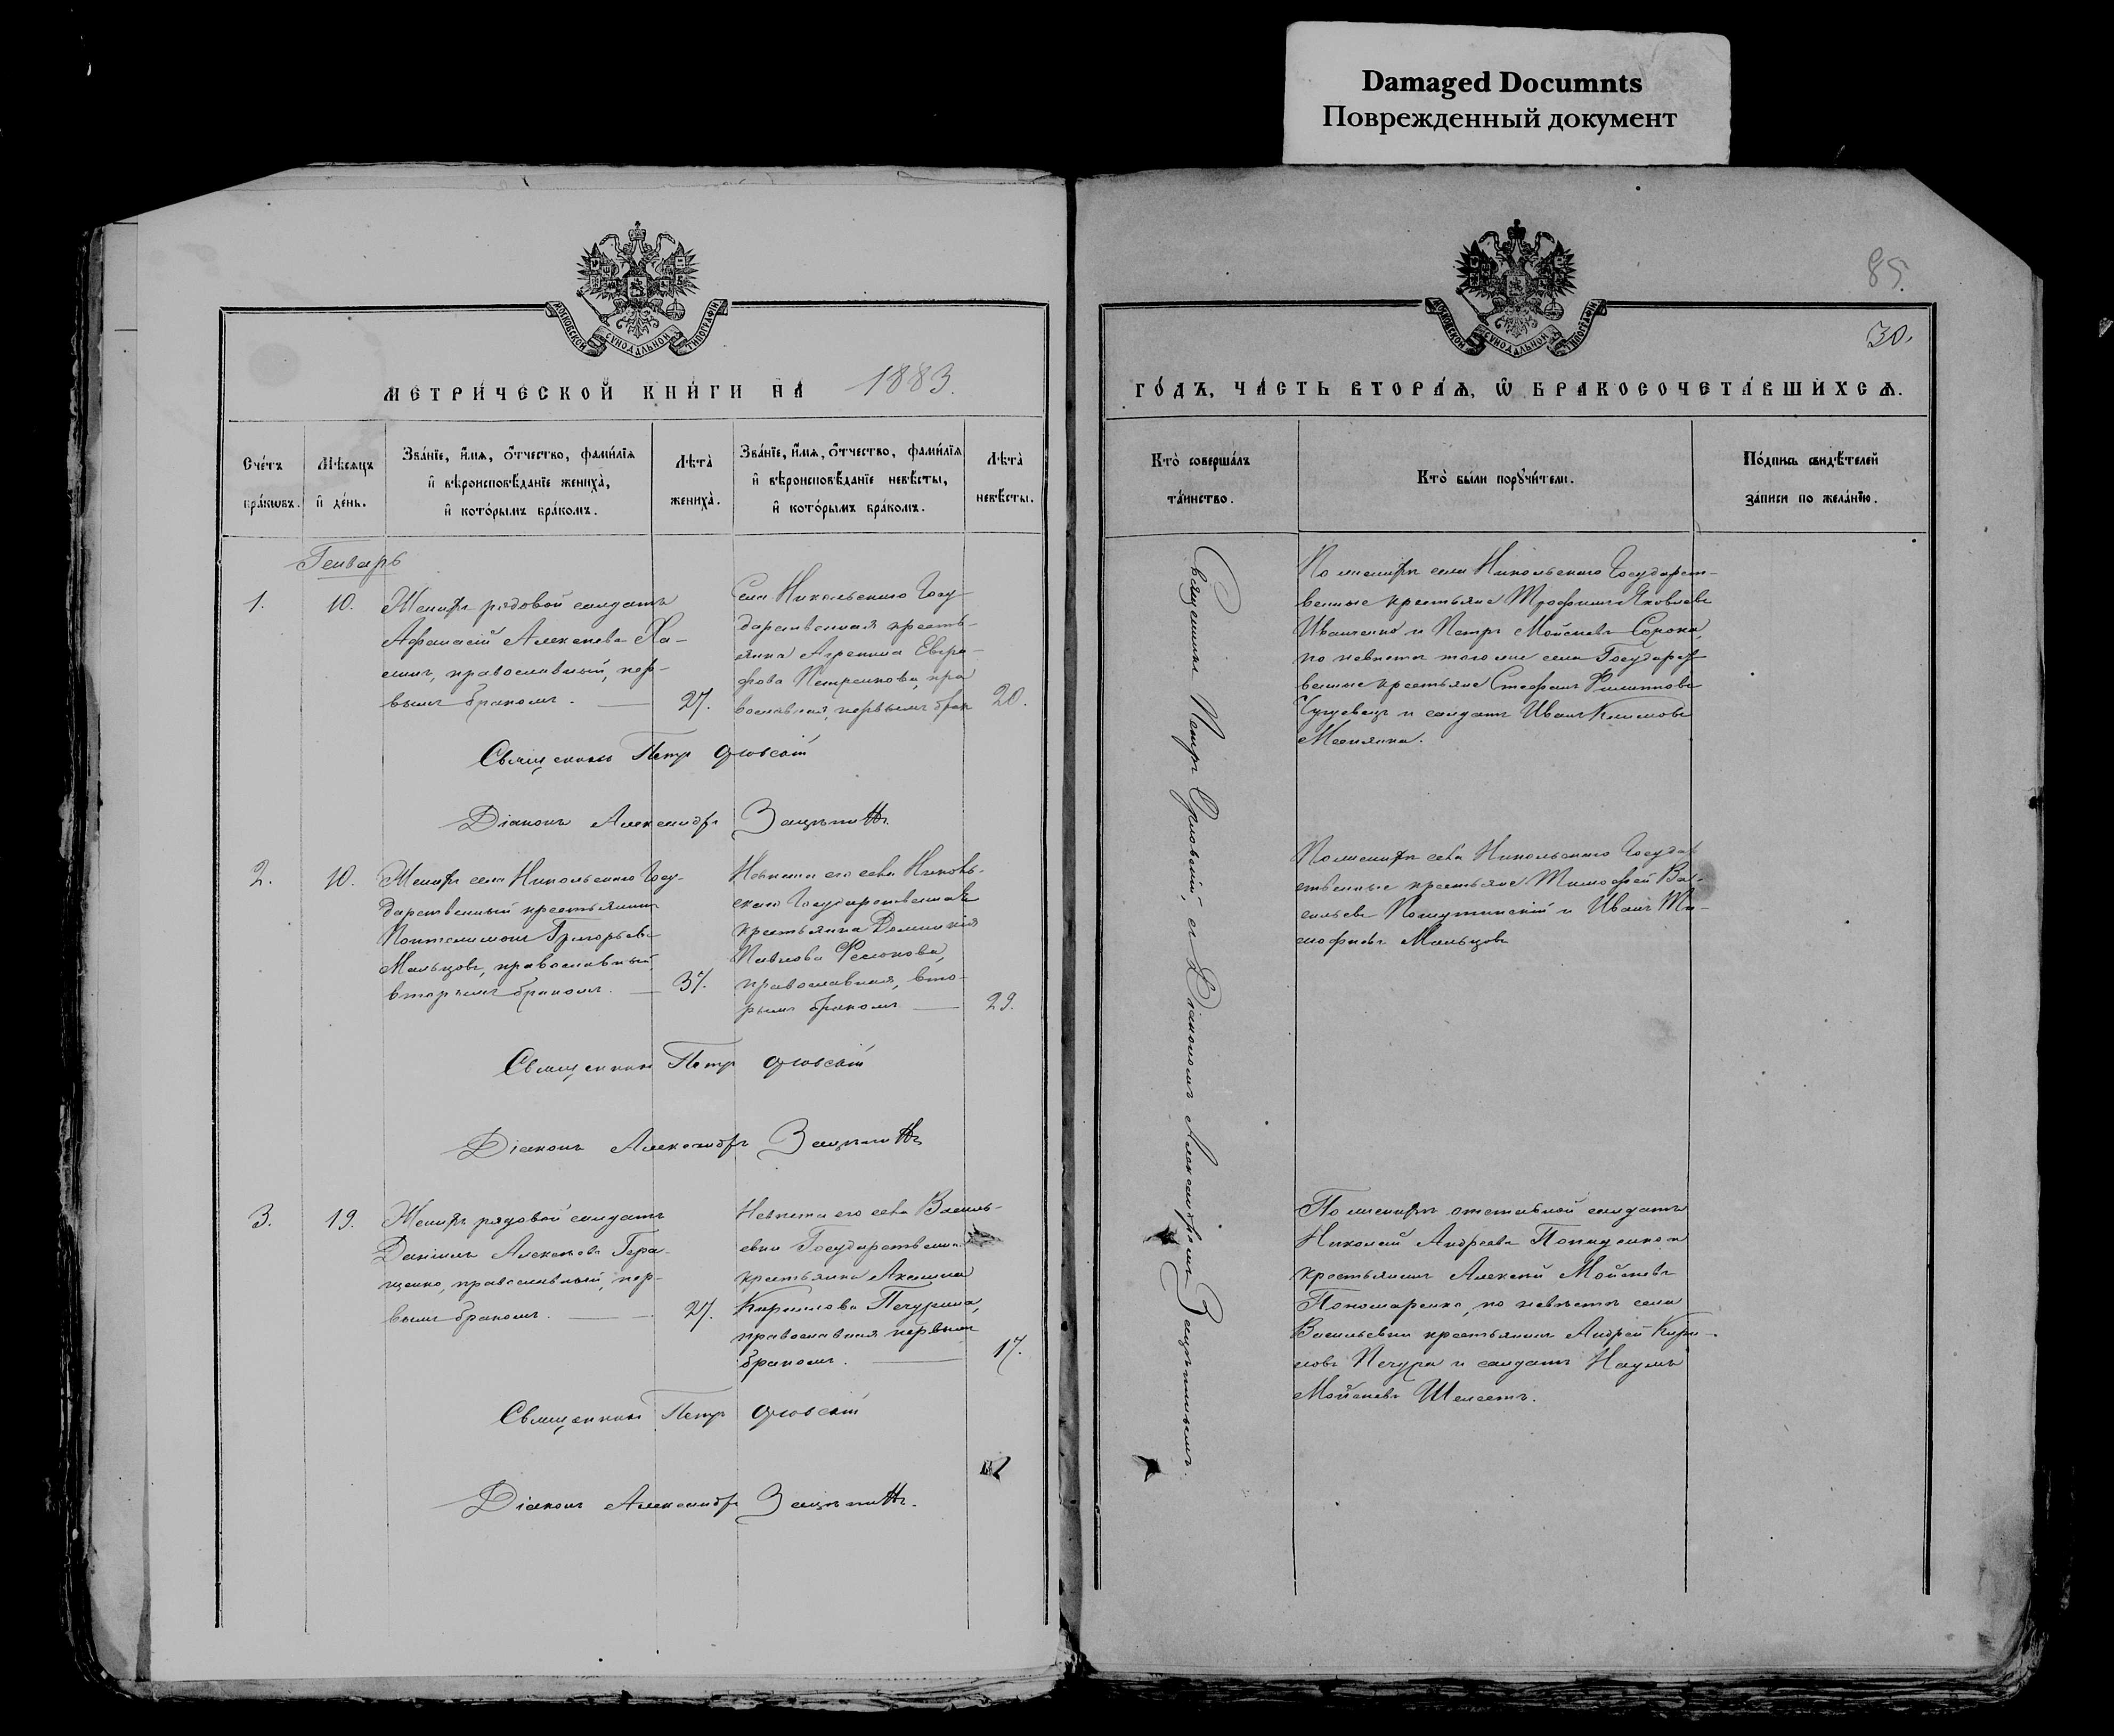 Damaged Documnts
Поврежденный документ
МОСКОВСКОЙ СѴНОДАЛЬНОЙ ТИПОГРАФІИ
МЕТРИ́ЧЕСКОЙ КНИ́ГИ НА 1883.
Сче́тъ бра́кѡвъ.
Мѣ́сяцъ и҆ де́нь.
Зва́нїе, и҆́мѧ, ѻ҆́тчество, фами́лїѧ
и҆ вѣроисповѣ́данїе жениха̀,
и҆ кото́рымъ бра́комъ.
Лѣ́та̀ жениха̀.
Зва́нїе, и҆́мѧ, ѻ҆́тчество, фами́лїѧ
и҆ вѣроисповѣ́данїе невѣ́сты,
и҆ кото́рымъ бра́комъ.
Лѣ́та̀ невѣ́сты.
Генварь
1.
10.
Женихъ рядовой солдатъ
Афанасій Алексѣевъ Ха-
православный, пер-
вымъ бракомъ.
27.
Села Николескаго Госу-
дарственная кресть-
янка Агрипина Евгра-
фова Петренкова, пра
вославная, первымъ брак
20.
Священникъ Петръ Орловскій
Діаконъ Александръ
2.
10.
Женихъ села Николескаго Госу-
дарственный крестьянинъ
Пантелимонъ Григорьевъ
Мальцовъ, православный
вторымъ бракомъ.
37.
Невѣста его села Николь-
скаго Государственная
крестьянка Домникія
Павлова
православная, вто-
рымъ бракомъ
29.
Священникъ Петръ Орловскій
Діаконъ Александръ
3.
19.
Женихъ рядовой солдатъ
Даніилъ Алексѣевъ Гера-
щенко, православный, пер-
вымъ бракомъ.
27.
Невѣста его села Василь-
евки Государственная
крестьянка Акилина
Кирилова Печурина,
православная первымъ
бракомъ.
17.
Священникъ Петръ Орловскій
Діаконъ Александръ
85.
30.
МОСКОВСКОЙ СѴНОДАЛЬНОЙ ТИПОГРАФІИ
ГО́ДЪ, ЧА́СТЬ ВТОРА́Ѧ, Ѡ҆ БРАКОСОЧЕТА́ВШИХСѦ.
Кто̀ соверша́лъ
та́инство.
Кто̀ бы́ли порꙋчи́тели.
По́дпись свидѣ́телей
за́писи по жела́нїю.
Священникъ Петръ Орловскій, съ Діакономъ Александромъ
По женихѣ села Николескаго Государст-
венные крестьяне Трофимъ Яковлевъ
Иванченко и Петръ Мойсеевъ Сорока,
по невѣстѣ того же села Государст
венные крестьяне Стефанъ Филиповъ
Чугуевецъ и солдатъ Иванъ Климовъ
По женихѣ села Николескаго Государ
ственные крестьяне Тимофей Ва-
сильевъ и Иванъ Ти-
мофеевъ Мальцовъ
По женихѣ отставной солдатъ
Николай Андреевъ и
крестьянинъ Алексѣй Мойсеевъ
Пономаренко, по невѣстѣ села
Васильевки крестьянинъ Андрей Кири-
ловъ Печура и солдатъ Наумъ
Мойсеевъ Шелестъ.